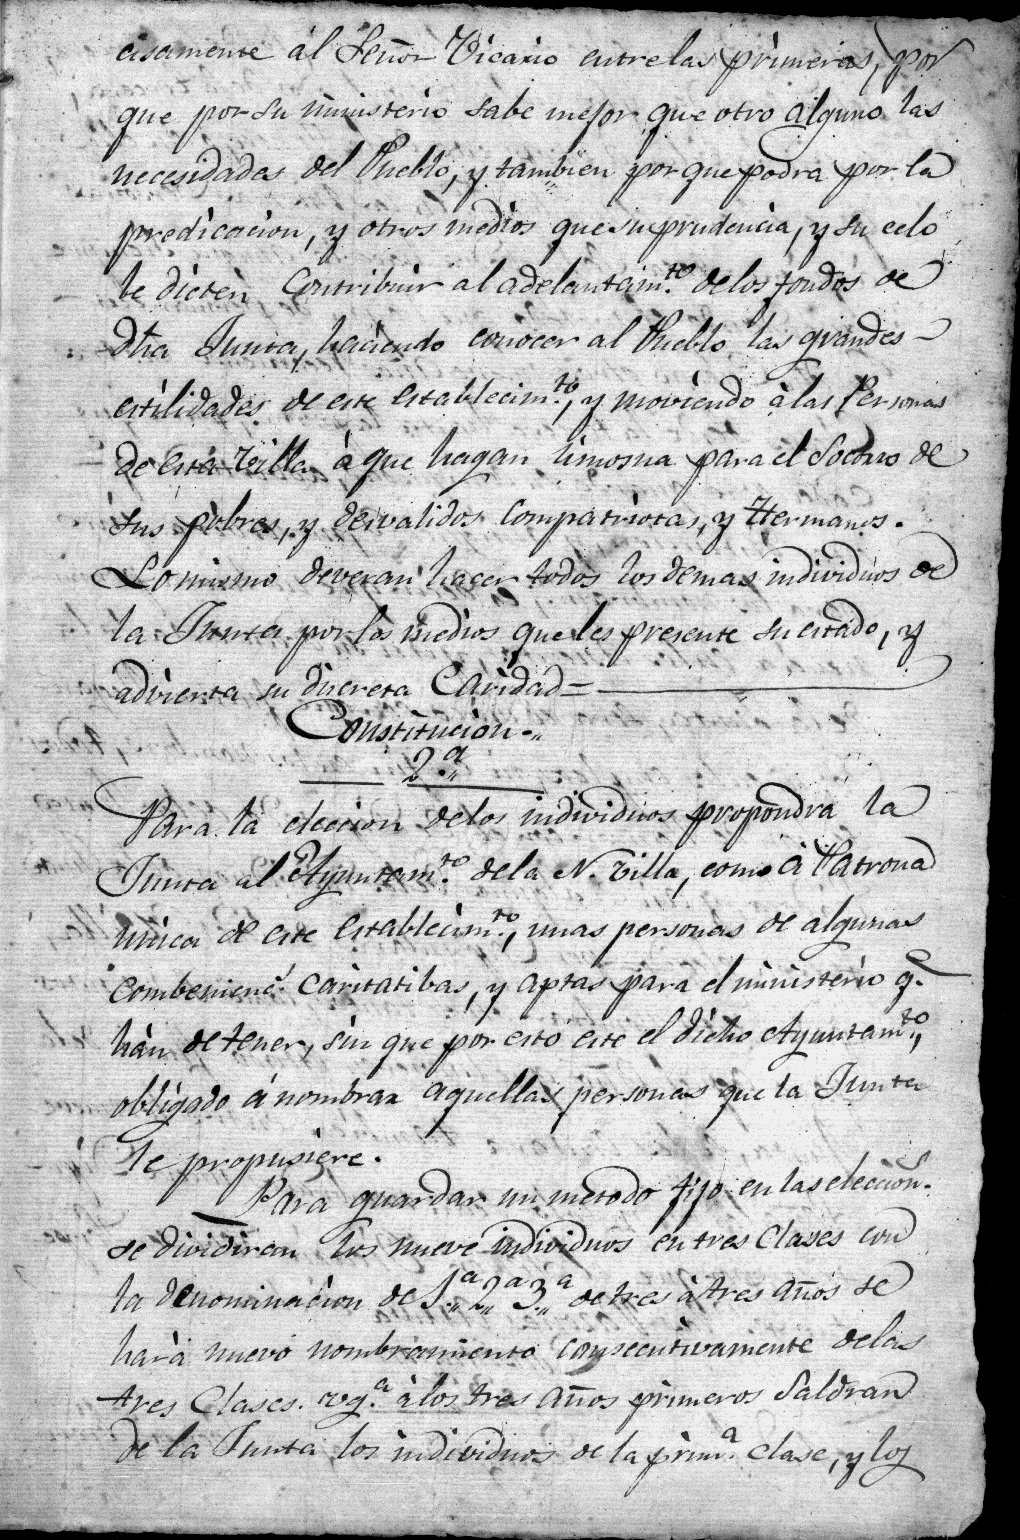 cisamente ál Señor Vicario entre las primeras, por
que por su ministerio sabe mejor que otro alguno las
necesidades del Pueblo, y tambien por que podra por la
predicacion, y otros medios que su prudencia, y su celo
le dicten Contribuir al adelantam.to de los fondos de
dha Junta, haciendo conocer al Pueblo las grandes
utilidades de este establecim.to, y moviendo à las Personas
de esta Villa à que hagan limosna para el Socorro de
sus pobres, y desvalidos compatriotas, y Hermanos.
Lo mismo deveran hacer todos los demas individuos de
la Junta por los medios, que les presente su estado, y
advierta su discreta Caridad =
Constitucion
2.a
Para la eleccion de los individuos propondra la
Junta al Ayuntam.to de la N. Villa, como à Patrona
unica de este establecim.to, unas personas de algunas
combenienc.s caritatibas, y aptas para el ministerio q.e
hàn de tener, sin que por esto este el dicho Ayuntam.to,
obligado à nombrar aquellas personas que la Junta
le propusiere.
Para guardar un metodo fijo en las eleccion.s
se dividiran los nueve individuos en tres Clases con
la denominacion de 1.a 2.a 3.a de tres à tres años se
harà nuevo nombramiento consecutivamente de las
tres Clases. vg.a à los tres años primeros Saldran
de la Junta los individuos de la prim.a clase, y los